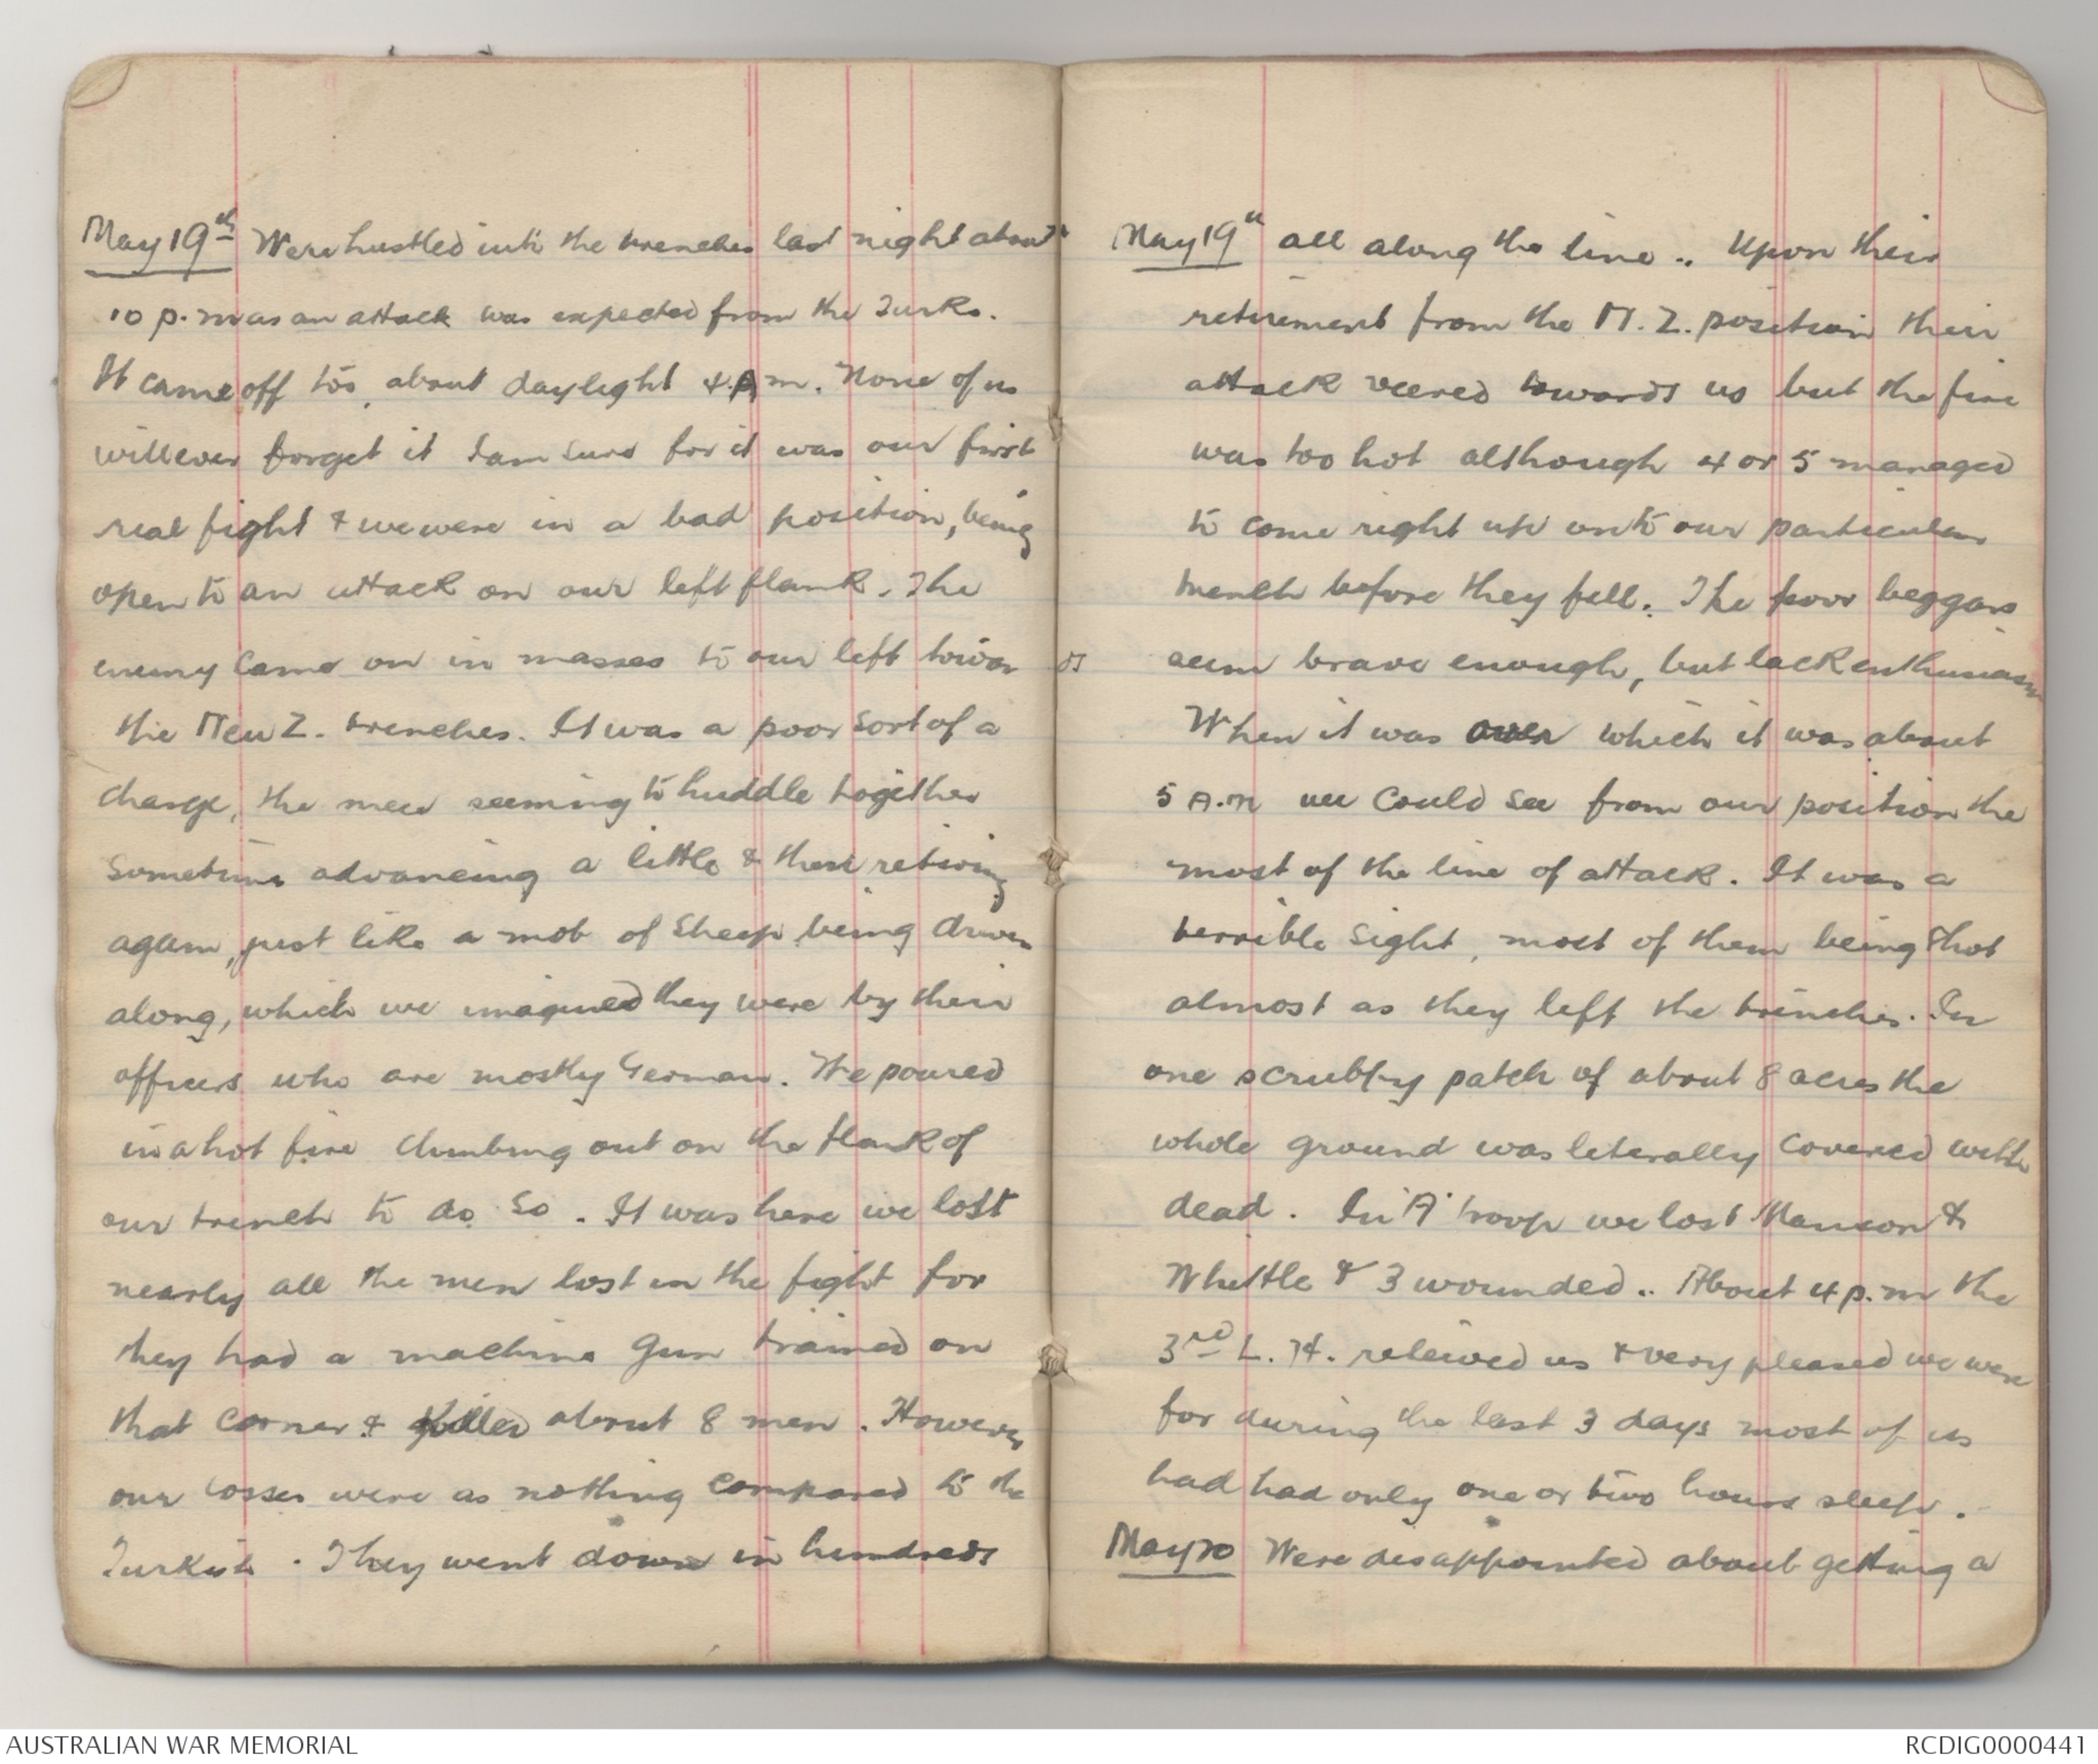 May 19th Were hustled into the trenches last night about
10 p.m as an attack was expected from the Turks.
It came off too, about daylight 4.A.m. None of us
will ever forget it I am sure for it was our first
real fight & we were in a bad position, being
open to an attack on our left flank. The
enemy came on in masses to our left towards
the New Z. trenches. It was a poor sort of a
charge, the men seeming to huddle together
sometimes advancing a little & then retiring
again, just like a mob of sheep being driven
along, which we imagined they were by their
officers who are mostly German. We poured
in a hot fire climbing out on the flank of
our trench to do so. It was here we lost
nearly all the men lost in the fight for
they had a machine gun trained on
that corner & killed about 8 men. However
our losses were as nothing compared to the
Turkish. They went down in hundreds
May 19th all along the line.. Upon their
retirement from the N.Z. position their
attack veered towards us but the fire
was too hot although 4 or 5 managed
to come right up onto our particular
trench before they fell. The poor beggars
seem brave enough, but lack enthusiasm
When it was over which it was about
5 A.M we could see from our position the
most of the line of attack. It was a
terrible sight, most of them being shot
almost as they left the trenches. In
one scrubby patch of about 8 acres the
whole ground was literally covered with
dead. In 'A' troop we lost Manson &
Whittle & 3 wounded.. About 4 p.m the
3rd L.H. releived us & very pleased we were
for during the last 3 days most of us
had had only one or two hours sleep.
May 20 Were disappointed about getting a
AUSTRALIAN WAR MEMORIAL
RCDIG0000441